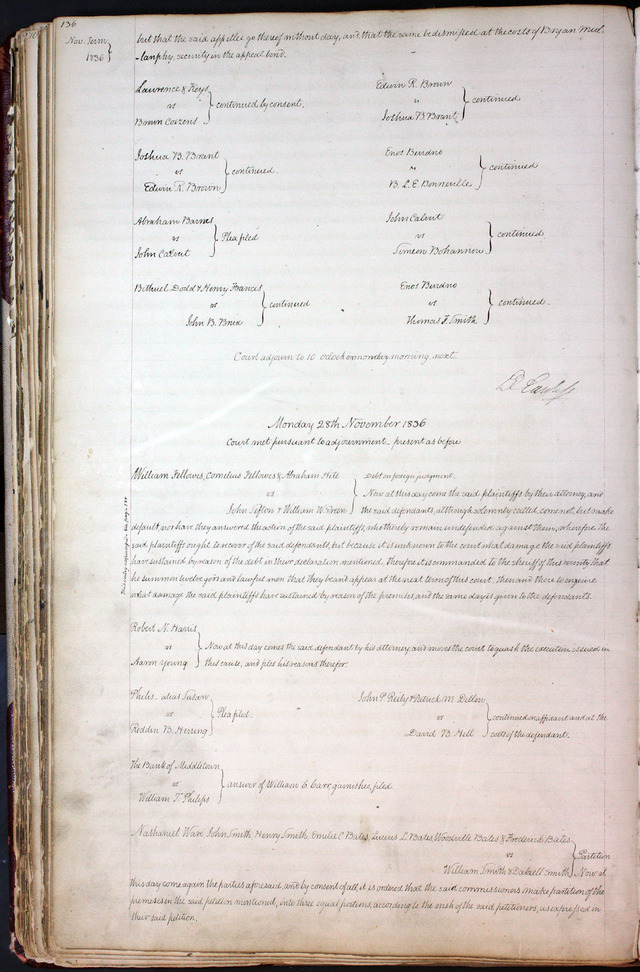 136
Nov. Term
1836
but that the said appellee go thereof without day, and that the same be dismissed at the costs of Bryan Mul-
-lanphy, security in the appeal bond.
Lawrence & Keys
vs
Brown Cozzens
continued by consent.
Edwin R. Brown
vs
Joshua B. Brant
continued
Joshua B. Brant
vs
Edwin R. Brown
continued.
Enos Burdno
vs
B. L. E. Bonneville
continued
Abraham Barnes
vs
John Calvert
Plea filed
John Calvert
vs
Simeon Bohannon
continued
Bithuel Dodd & Henry Francis
vs
John B. Brux
continued
Enos Burdno
vs
Thomas F. Smith
continued.
Court adjourn to 10 o'clock on monday morning next.
Monday 28th November 1836
Court met pursuant to adjournment present as before
William Fellowes, Cornelius Fellowes & Abraham Hite
vs
John Sefton & William W. Green
Debt on foreign judgment.
Now at this day come the said plaintiffs by their attorney, and
the said defendants, although solemnly called, come not, but make
default, nor have they answered the action of the said plaintiffs, who thereby remain undefended against them, wherefore the
said plaintiffs ought to recover of the said defendants, but because it is unknown to the court what damage the said plaintiffs
have sustained by reason of the debt in their declaration mentioned, Therefore it is commanded to the sheriff of this county that
he summon twelve good and lawful men that they be and appear at the next term of this court, then and there to enquire
what damage the said plaintiffs have sustained by reason of the premises and the same day is given to the defendants.
Robert N. Harris
vs
Aaron Young
Now at this day comes the said defendant by his attorney and moves the court to quash the execution issued in
this cause, and files his reasons therefor.
Philis alias Susan
vs
Reddin B. Herring
Plea filed.
John P. Reily & Patrick M. Dillon
vs
David B. Hill
continued on affidavit and at the
costs of the defendant.
The Bank of Middletown
vs
William T. Philips
answer of William C. Carr, garnishee, filed.
Nathaniel Ware John Smith, Henry Smith, Emilie C Bates, Lucius L Bates, Woodville Bates & Frederick Bates
vs
William Smith & Dabzell Smith
Partition
Now at
this day come again the parties aforesaid, and by consent of all, it is ordered that the said commissioners make partition of the
premises in the said petition mentioned, into three equal portions, according to the wish of the said petitioners, as expressed in
their said petition.